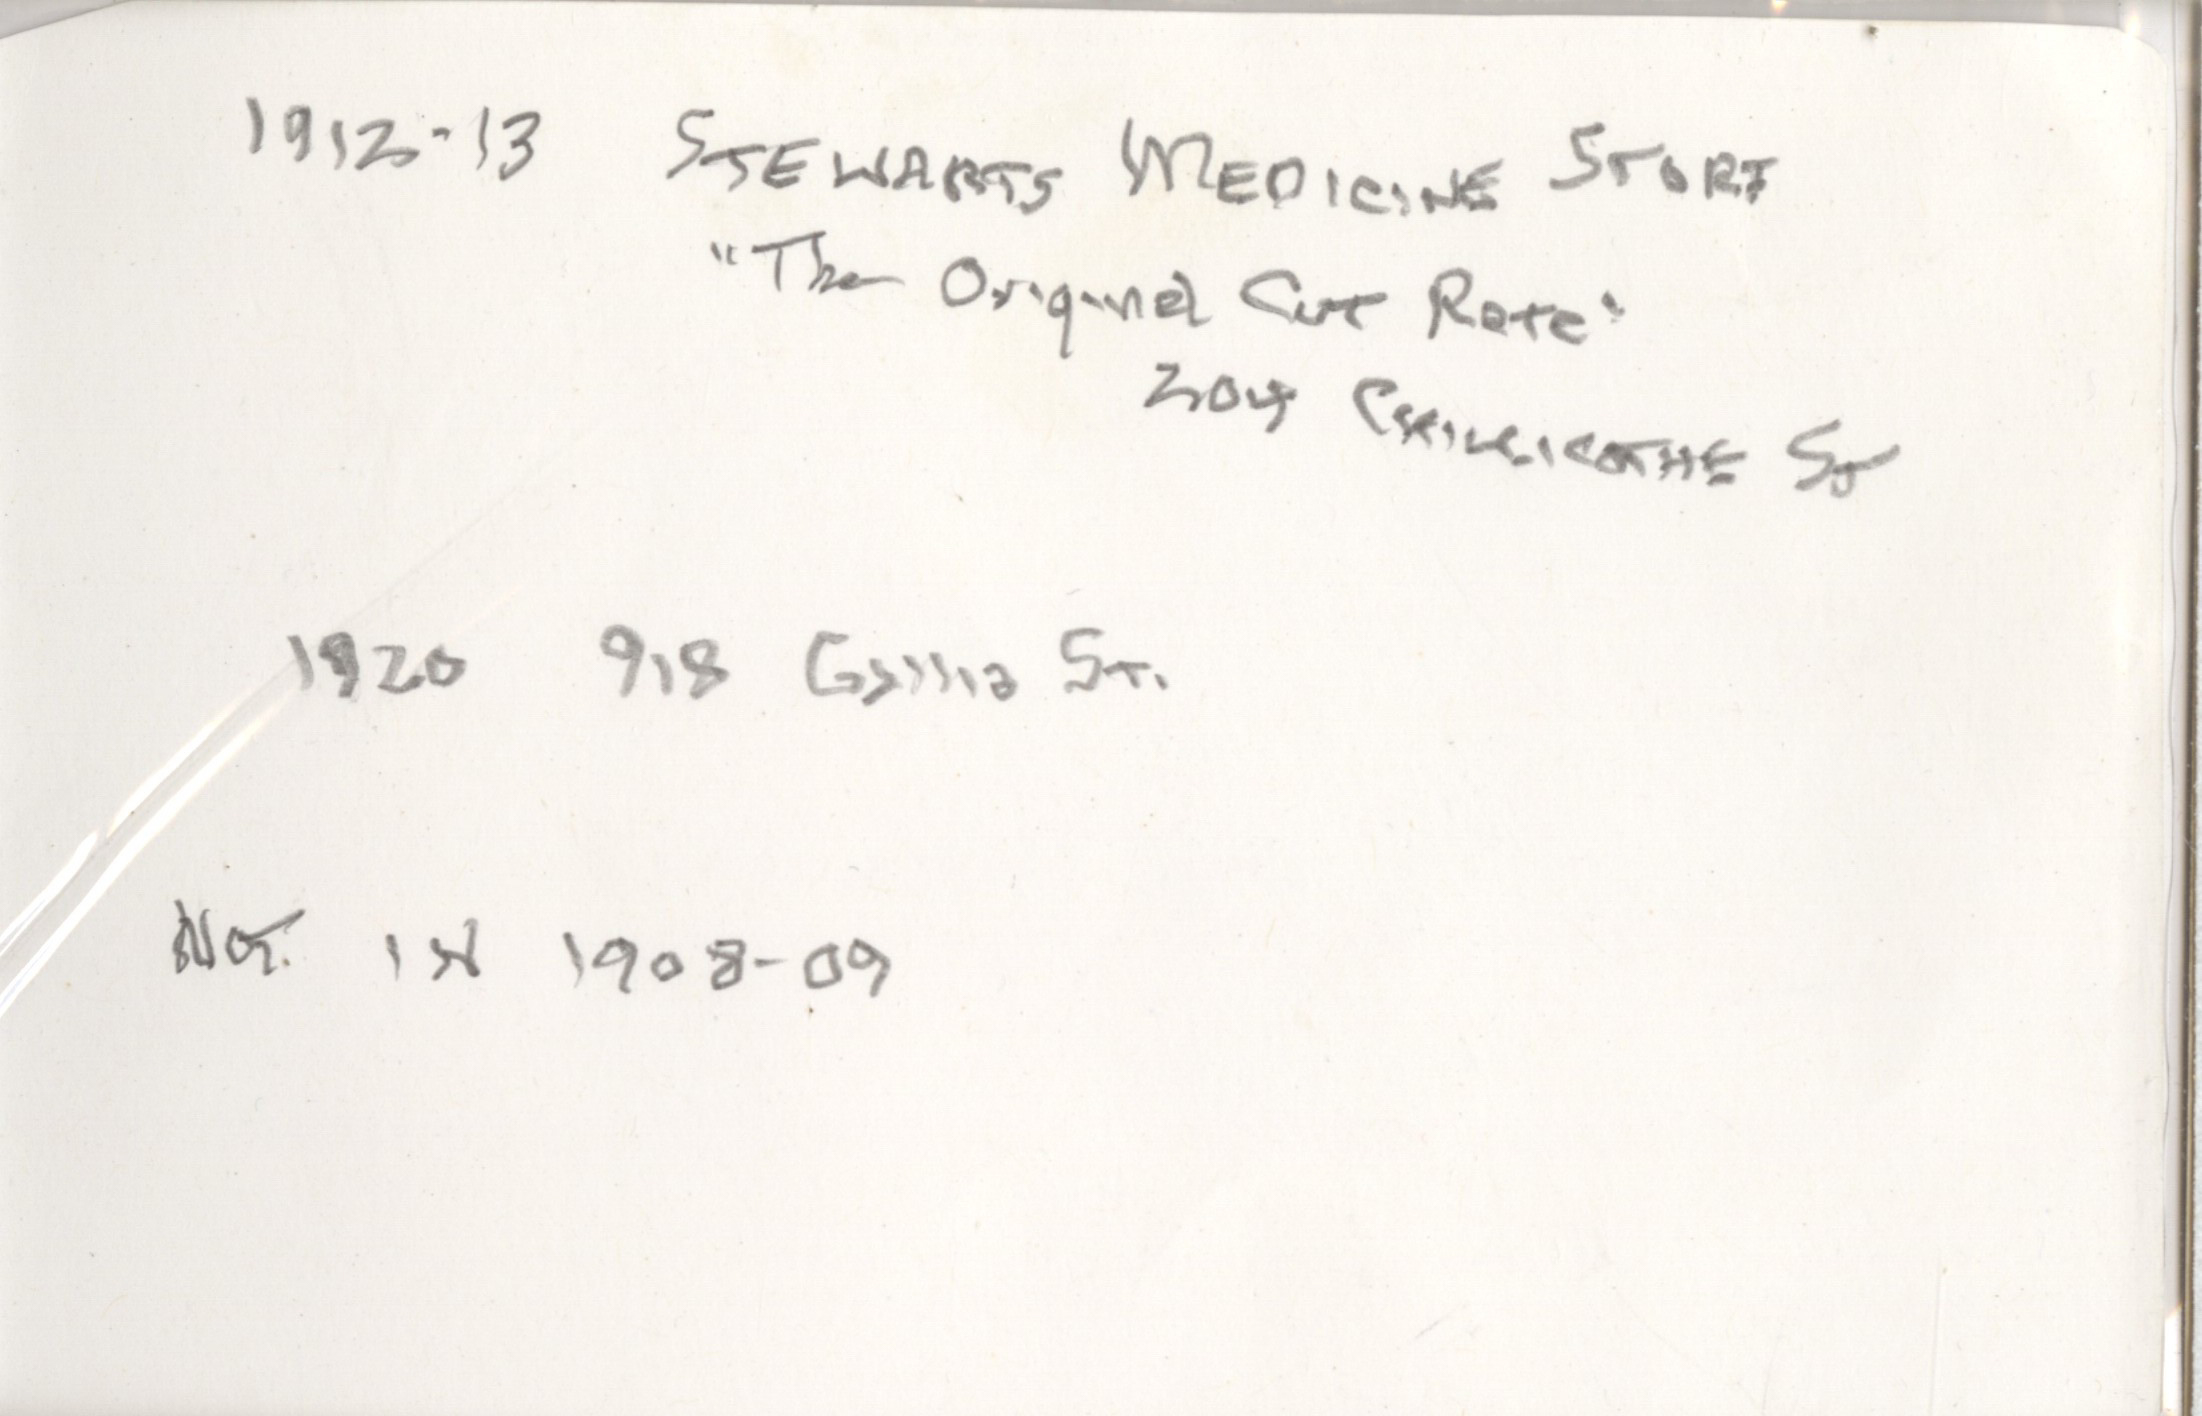 1912-13 STEWARTS MEDICINE STORE
"The Original Cut Rate"
204 CHILLICOTHE ST
1920 918 Gallia St.
NOT IN 1908-09